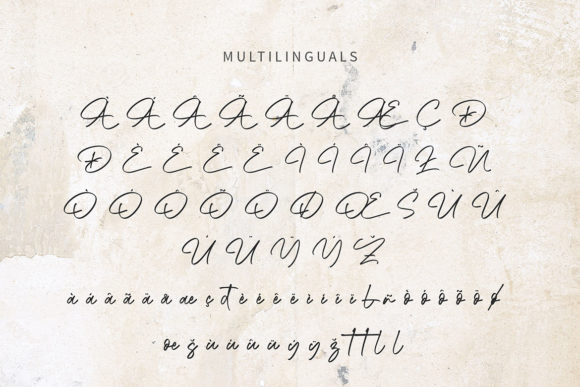 MULTILINGUALS
À Á Â Ã Ä Å Æ Ç Ð
Đ È É Ê Ë Ì Í Î Ï Ł Ñ
Ò Ó Ô Õ Ö Ø Œ Š Ù Û
Ú Ü Ÿ Ý Ž
à á â ã ä å æ ç đ è é ê ë ì í î ï ł ñ ò ó ô õ ö ø
œ š ù ú û ü ý ÿ ž